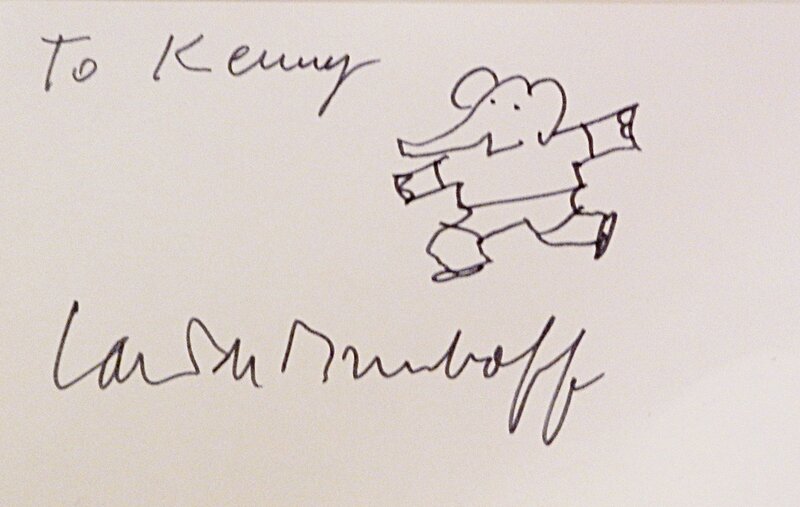 To Kenny
Laurent de Brunhoff